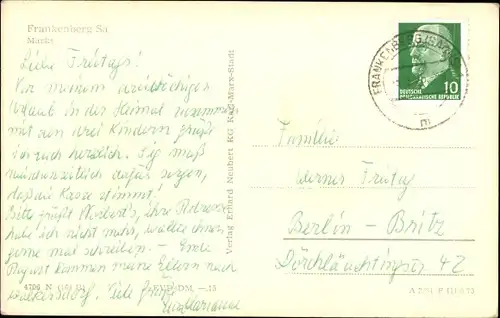 Frankenberg Sa.
Markt
Liebe Freitags!
Von meinem dreiwöchigen
Urlaub in der Heimat zusammen
mit den drei Kindern grüß
ich euch herzlich. Sig muß
inzwischenzeitlich dafür sorgen,
daß die Kasse stimmt!
Bitte grüßt Norbert's, ihre Adresse
habe ich nicht mehr, wollte ihnen
gerne mal schreiben. - Ende
August kommen meine Eltern nach
Viele Grüße
Marianne
4706 N
EVP DM -.15
Verlag Erhard Neubert KG Karl-Marx-Stadt
FRANKENBERG (SACHS)
m
DEUTSCHE
DEMOKRATISCHE REPUBLIK
10
Familie
Werner Freitag
Berlin-Britz
Dörchläuchtingstr 42